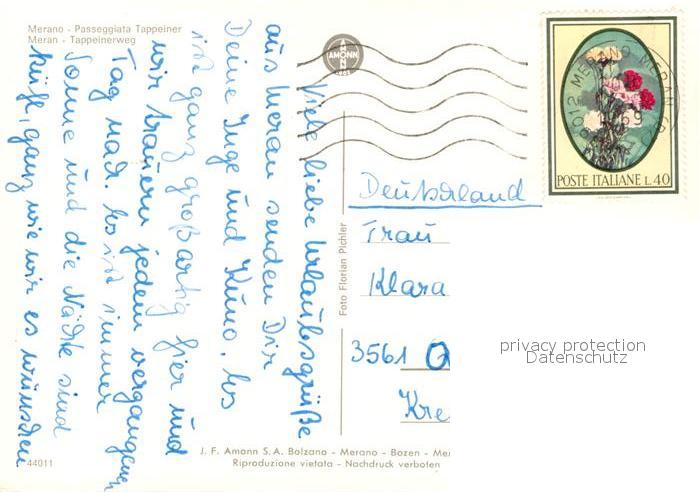 Merano - Passeggiata Tappeiner
Meran - Tappeinerweg
AMONN
Viele liebe Urlaubsgrüße
aus Meran senden Dir
Deine Inge und Kuno. Es
ist ganz großartig hier und
wir trauern jedem vergangenen
Tag nach. Es ist immer
Sonne und die Nächte sind
kühl, ganz wie wir es wünschen
Foto Florian Pichler
MERANO MERAN
POSTE ITALIANE L.40
Deutschland
Frau
Klara
3561
Kre
privacy protection
Datenschutz
J. F. Amonn S.A. Bolzano - Merano - Bozen - Me
Riproduzione vietata - Nachdruck verboten
44011